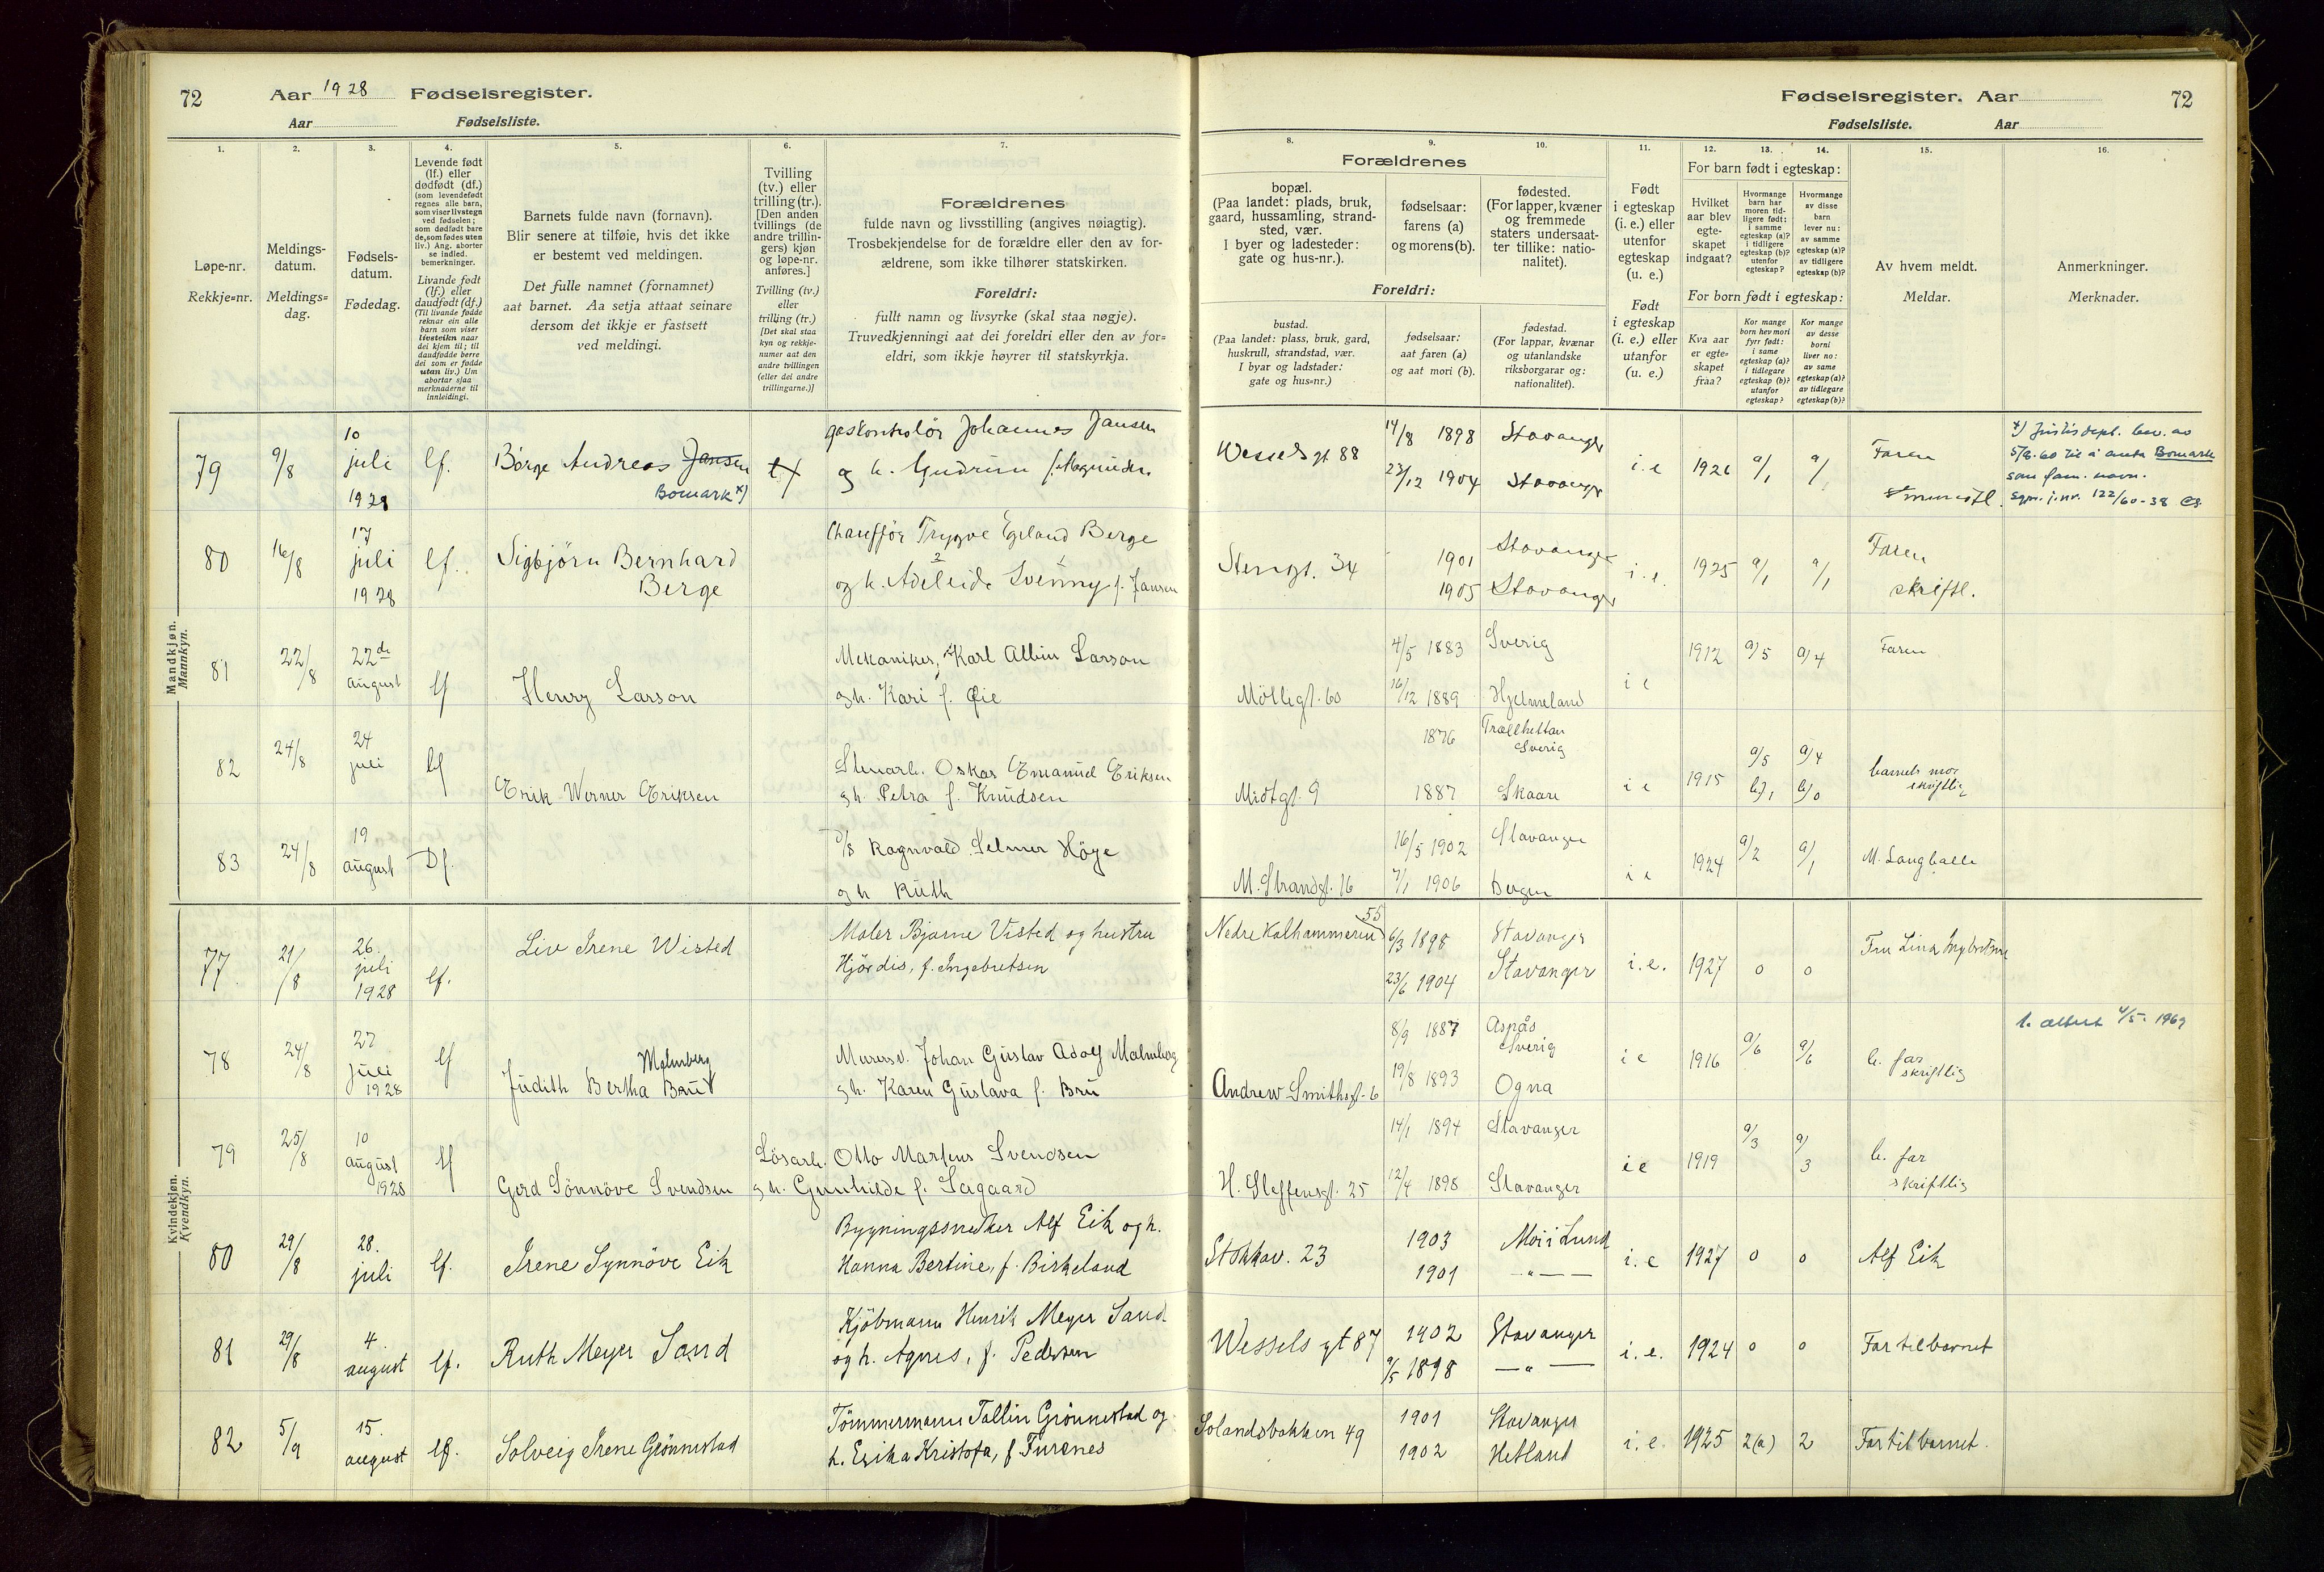 72 Aar 1928 Fødselsregister.
Aar Fødselsliste.
Fødselsregister. Aar 72
Fødselsliste. Aar
1. 2. 3. 4. 5. 6. 7. 8. 9. 10. 11. 12. 13. 14. 15. 16.
Løpe-nr.
Rekkje=nr.
Meldings-
datum.
Meldings=
dag.
Fødsels-
datum.
Fødedag.
Levende født
(lf.) eller
dødfødt (df.)
(som levendefødt
regnes alle barn,
som viser livstegn
ved fødselen;
som dødfødt bare
de, som fødes uten
liv.) Ang. aborter
se indled.
bemerkninger.
Livande født
(lf.) eller
daudfødt (df.)
(Til livande fødde
reknar ein alle
barn som viser
livsteikn naar
dei kjem til; til
daudfødde berre
dei som er fødde
utan liv.) Um
abortar sjaa
merknaderne til
innleidingi.
Barnets fulde navn (fornavn).
Blir senere at tilføie, hvis det ikke
er bestemt ved meldingen.
Det fulle namnet (fornamnet)
aat barnet. Aa setja attaat seinare
dersom det ikkje er fastsett
ved meldingi.
Tvilling
(tv.) eller
trilling (tr.).
[Den anden
tvillings (de
andre trillin-
gers) kjøn
og løpe-nr.
anføres.]
Tvilling (tv.)
eller
trilling (tr.)
[Det skal staa
kyn og rekkje-
numer aat den
andre tvillingen
(eller dei andre
trillingarne.)]
Forældrenes
fulde navn og livsstilling (angives nøiagtig).
Trosbekjendelse for de forældre eller den av for-
ældrene, som ikke tilhører statskirken.
Foreldri:
fullt namn og livsyrke (skal staa nøgje).
Truvedkjenningi aat dei foreldri eller den av for=
eldri, som ikkje høyrer til statskyrkja.
Forældrenes
bopæl.
(Paa landet: plads, bruk,
gaard, hussamling, strand-
sted, vær.
I byer og ladesteder:
gate og hus-nr.).
fødselsaar:
farens (a)
og morens (b).
fødested.
(For lapper, kvæner
og fremmede
staters undersaat-
ter tillike: natio-
nalitet).
Foreldri:
bustad.
(Paa landet: plass, bruk, gard,
huskrull, strandstad, vær.
I byar og ladstader:
gate og hus=nr.)
fødselsaar:
aat faren (a)
og aat mori (b).
fødestad.
(For lappar, kvænar
og utanlandske
riksborgarar og:
nationalitet).
Født
i egteskap
(i. e.) eller
utenfor
egteskap
(u. e.)
Født
i egteskap
(i. e.) eller
utanfor
(u. e.)
For barn født i egteskap:
Hvilket
aar blev
egte-
skapet
indgaat?
Hvormange
barn har
moren tid-
ligere født:
i samme
egteskap (a)?
i tidligere
egteskap (b)?
utenfor
egteskap?
Hvormange
av disse
barn
lever nu:
av samme
egteskap (a)?
av tidligere
egteskap (b)?
For born født i egteskap:
Kva aar
er egte=
skapet
fraa?
Kor mange
born hev mori
fyrr født:
i same
egteskap (a)?
i tidlegare
egteskap (b)?
utanfor
egteskap?
Kor mange
av desse
borni
liver no:
av same
egteskap (a)?
av tidlegare
egteskap (b)?
Av hvem meldt.
Meldar.
Anmerkninger.
Merknader.
Mandkjøn.
Mannkyn.
79 9/8 10 juli 1928 lf. Börge Andreas Jansen
Bomark x)
gaskontrolör Johannes Jansen
og h. Gudrun f. Magnussen
Wessels gt 88 14/8 1898 Stavanger
23/12 1904 Stavanger
i. e 1926 a/1 a/1 Faren
x) Justisdept. bev. av
5/8.60 til å anta Bomark
som fam. navn.
Sgpr. j.nr. 122/60-38
80 16/8 17 juli 1928 lf. Sigbjörn Bernhard
Berge
Chaufför Trygve Egeland Berge
og h. Adeleide Svenny f. Jansen
Stengt. 34 1901 Stavanger
1905 Stavanger
i. e. 1925 a/1 a/1 Faren
skriftl.
81 22/8 22de august lf Henry Larson
Mekaniker, Karl Albin Larson
g h. Kari f. Öie
Möllegt. 60 4/5 1883 Sverig
16/12 1889 Hjelmeland
i e 1912 a/5 a/4 Faren
82 24/8 24 juli lf Erik Werner Eriksen
Stuarb. Oskar Emanuel Eriksen
g h. Petra f. Knudsen
Midtgt. 9 1876 Trællhettan
Sverig
1887 Skaare
i e 1915 a/5 a/4
b/1 b/0
barnets mor
skriftlig
83 24/8 19 august Df.
Ragnvald Selmer Höge
g h Ruth
M. Strandgt. 16 16/5 1902 Stavanger
7/1 1906 Bergen
i e 1924 a/2 a/1 M. Langballe
Kvindekjøn.
Kvendkyn.
77 21/8 26. juli 1928 lf. Liv Irene Wisted
Maler Bjarne Visted og hustru
Hjördis, f. Ingebretsen
Nedre Kalhammeren 55 6/3 1898 Stavanger
23/6 1904 Stavanger
i. e. 1927 0 0 Fru Lina Ingebretsen
78 24/8 27 juli 1928 lf Malmberg
Judith Bertha Bru
Murersv. Johan Gustav Adolf Malmberg
g h. Karen Gustava f. Bru
Andrew Smithsgt. 6 8/9 1887 Aspås
Sverig
19/8 1893 Ogna
i e 1916 a/6 a/6 b. far
skriftlig
b. attest 4/5. 1969
79 25/8 10 august 1928 lf Gerd Sönnöve Svendsen
Lösarb. Otto Martens Svendsen
g h. Gunhilde f. Segaard
H. Steffensgt. 25 14/1 1894 Stavanger
12/4 1898 Stavanger
i e 1919 a/3 a/3 b. far
skriftlig
80 29/8 28. juli lf. Irene Synnöve Eik
Bygningssnedker Alf Eik og h.
Hanna Bertine, f. Birkeland
Stokkav. 23 1903 Moi i Lund
1901 — " —
i. e 1927 0 0 Alf Eik
81 29/8 4. august lf. Ruth Meyer Sand
Kjöbmann Henrik Meyer Sand
og h. Agnes, f. Pedersen
Wessels gt 87 1902 Stavanger
9/5 1898 — " —
i. e. 1924 0 0 Far til barnet
82 5/9 15. august lf. Solveig Irene Grönnestad
Tömmermann Tollin Grönnestad og
h. Erika Kristofa, f. Furenes
Solandsbakken 49 1901 Stavanger
1902 Hetland
i. e. 1925 2(a) 2 Far til barnet.